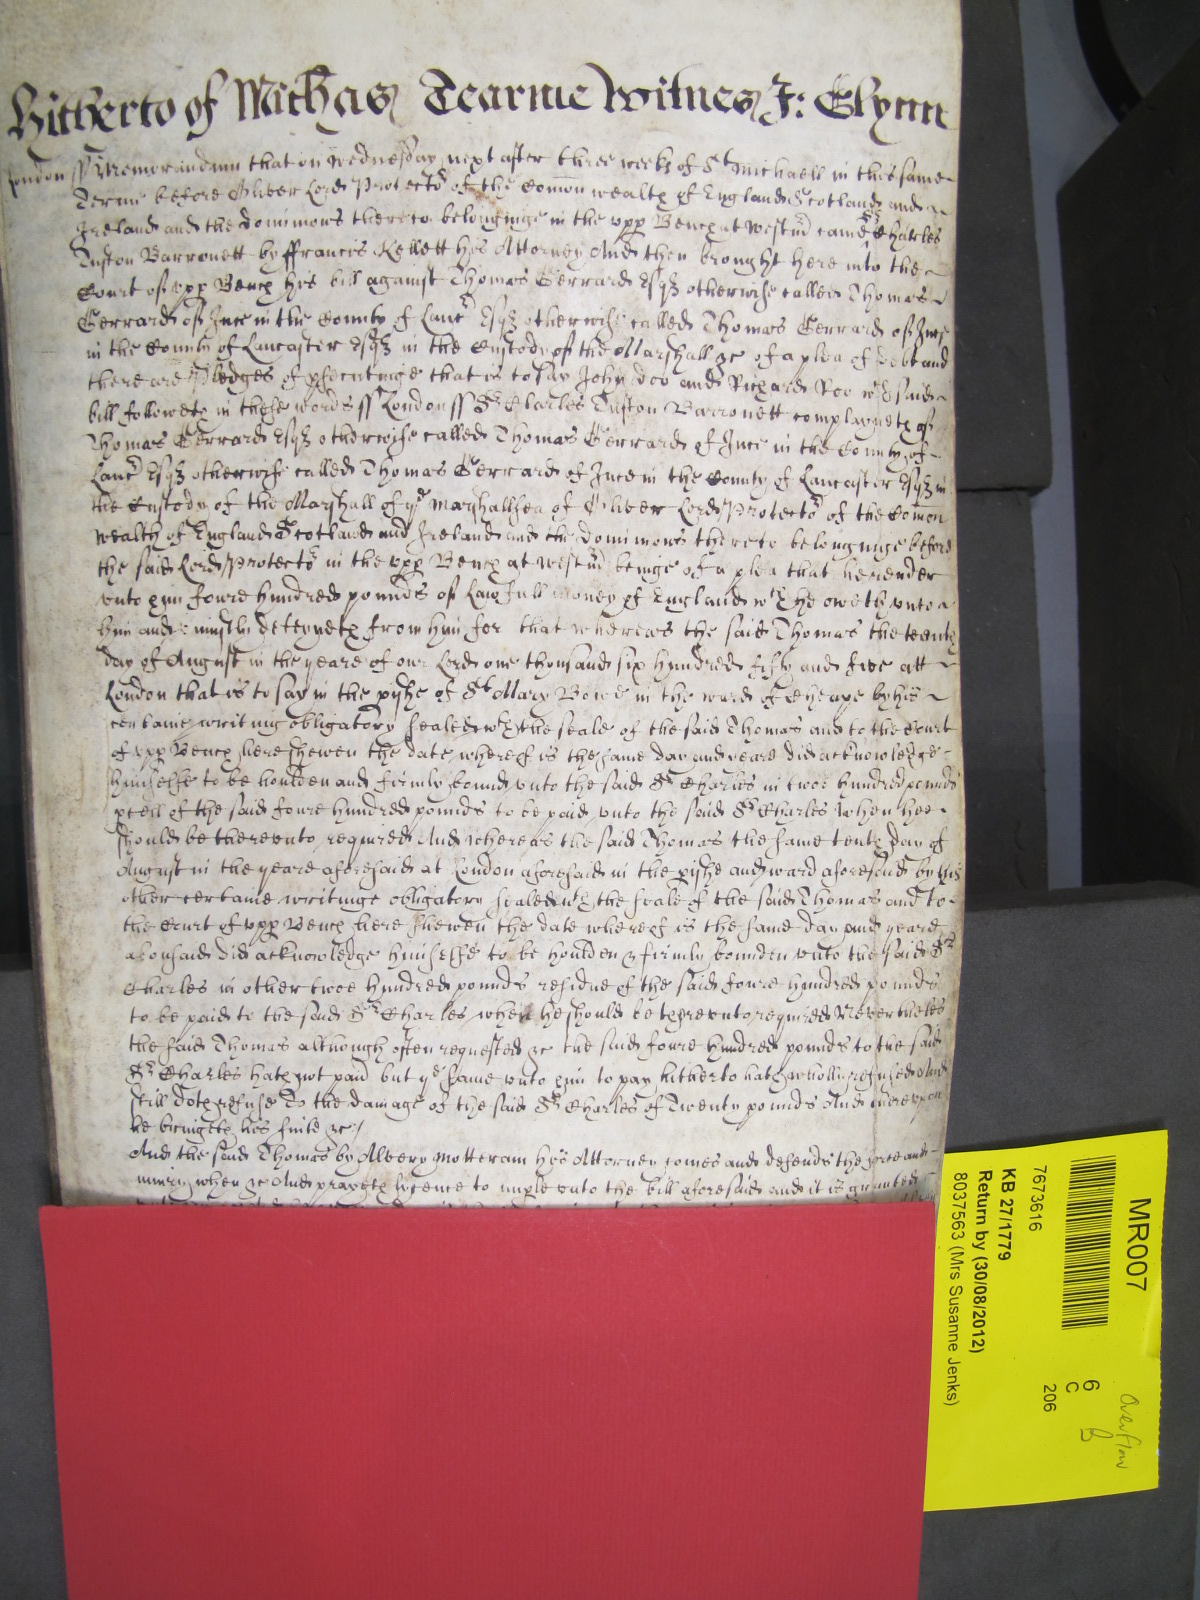 Hitherto of Michas Tearme Witnes J: Glynn
London ss Memorandum that on Wednesday next after three weeks of St Michaell in this same
Terme before Oliver Lord Protector of the Comon wealth of England Scotland and
Ireland and the dominions thereto belonginge in the upp Bench at Westm came Sr Charles
Tufton Barronett by ffrancis Kellett his Attorney And then brought here into the
Court of upp Bench his bill against Thomas Gerrard Esqr otherwise called Thomas
Gerrard of Ince in the County of Lanc Esqr otherwise called Thomas Gerrard of Ince
in the County of Lancaster Esqr in the Custody of the Marshall &c of a plea of debt and
there are Pledges of psecutinge that is to say John Doo and Richard Roo wch said
bill followeth in these words ss London ss Sr Charles Tufton Barronett complayneth of
Thomas Gerrard Esqr otherwise called Thomas Gerrard of Ince in the County of
Lanc Esqr otherwise called Thomas Gerrard of Ince in the County of Lancaster Esqr in
the Custody of the Marshall of ye Marshallsea of Oliver Lord Protector of the Comon
wealth of England Scotland and Ireland and the dominions thereto belonginge before
the said Lord Protector in the upp Bench at Westm beinge of a plea that he render
unto him fowre hundred pounds of Lawfull money of England wch he oweth unto
him and uniustly deteyneth from him for that whereas the said Thomas the tenth
day of August in the yeare of our Lord one thousand six hundred fifty and five att
London that is to say in the pishe of St Mary Bowe in the ward of Cheape by his
certaine writing obligatory sealed wth the seale of the said Thomas and to the Court
of upp Bench here shewen the date whereof is the same day and yeare did acknowledge
himselfe to be houlden and firmly bound unto the said Sr Charles in twoe hundred pounds
pcell of the said fowre hundred pounds to be paid unto the said Sr Charles when hee
should be thereunto required And whereas the said Thomas the same tenth day of
August in the yeare aforesaid at London aforesaid in the pishe and ward aforesaid by his
other certaine writinge obligatory sealed wth the seale of the said Thomas and to
the Court of upp Bench here shewen the date whereof is the same day and yeare
aforesaid did acknowledge himselfe to be houlden & firmly bounden unto the said Sr
Charles in other twoe hundred pounds residue of the said fowre hundred pounds
to be paid to the said Sr Charles when he should be thereunto required Neverthelesse
the said Thomas although often requested &c the said fowre hundred pounds to the said
Sr Charles hath not paid but ye same unto him to pay hitherto hath wholly refused And
still doth refuse To the damage of the said Sr Charles of Twenty pounds And thereupon
he bringeth his suite &c
And the said Thomas by Alvery Motteram his Attorney comes and defends the force and
iniury when &c And prayeth lycence to imple unto the bill aforesaid and it is granted
MR007
7673616
KB 27/1779
Return by (30/08/2012)
8037563 (Mrs Susanne Jenks)
6
C
206
Overflow
B